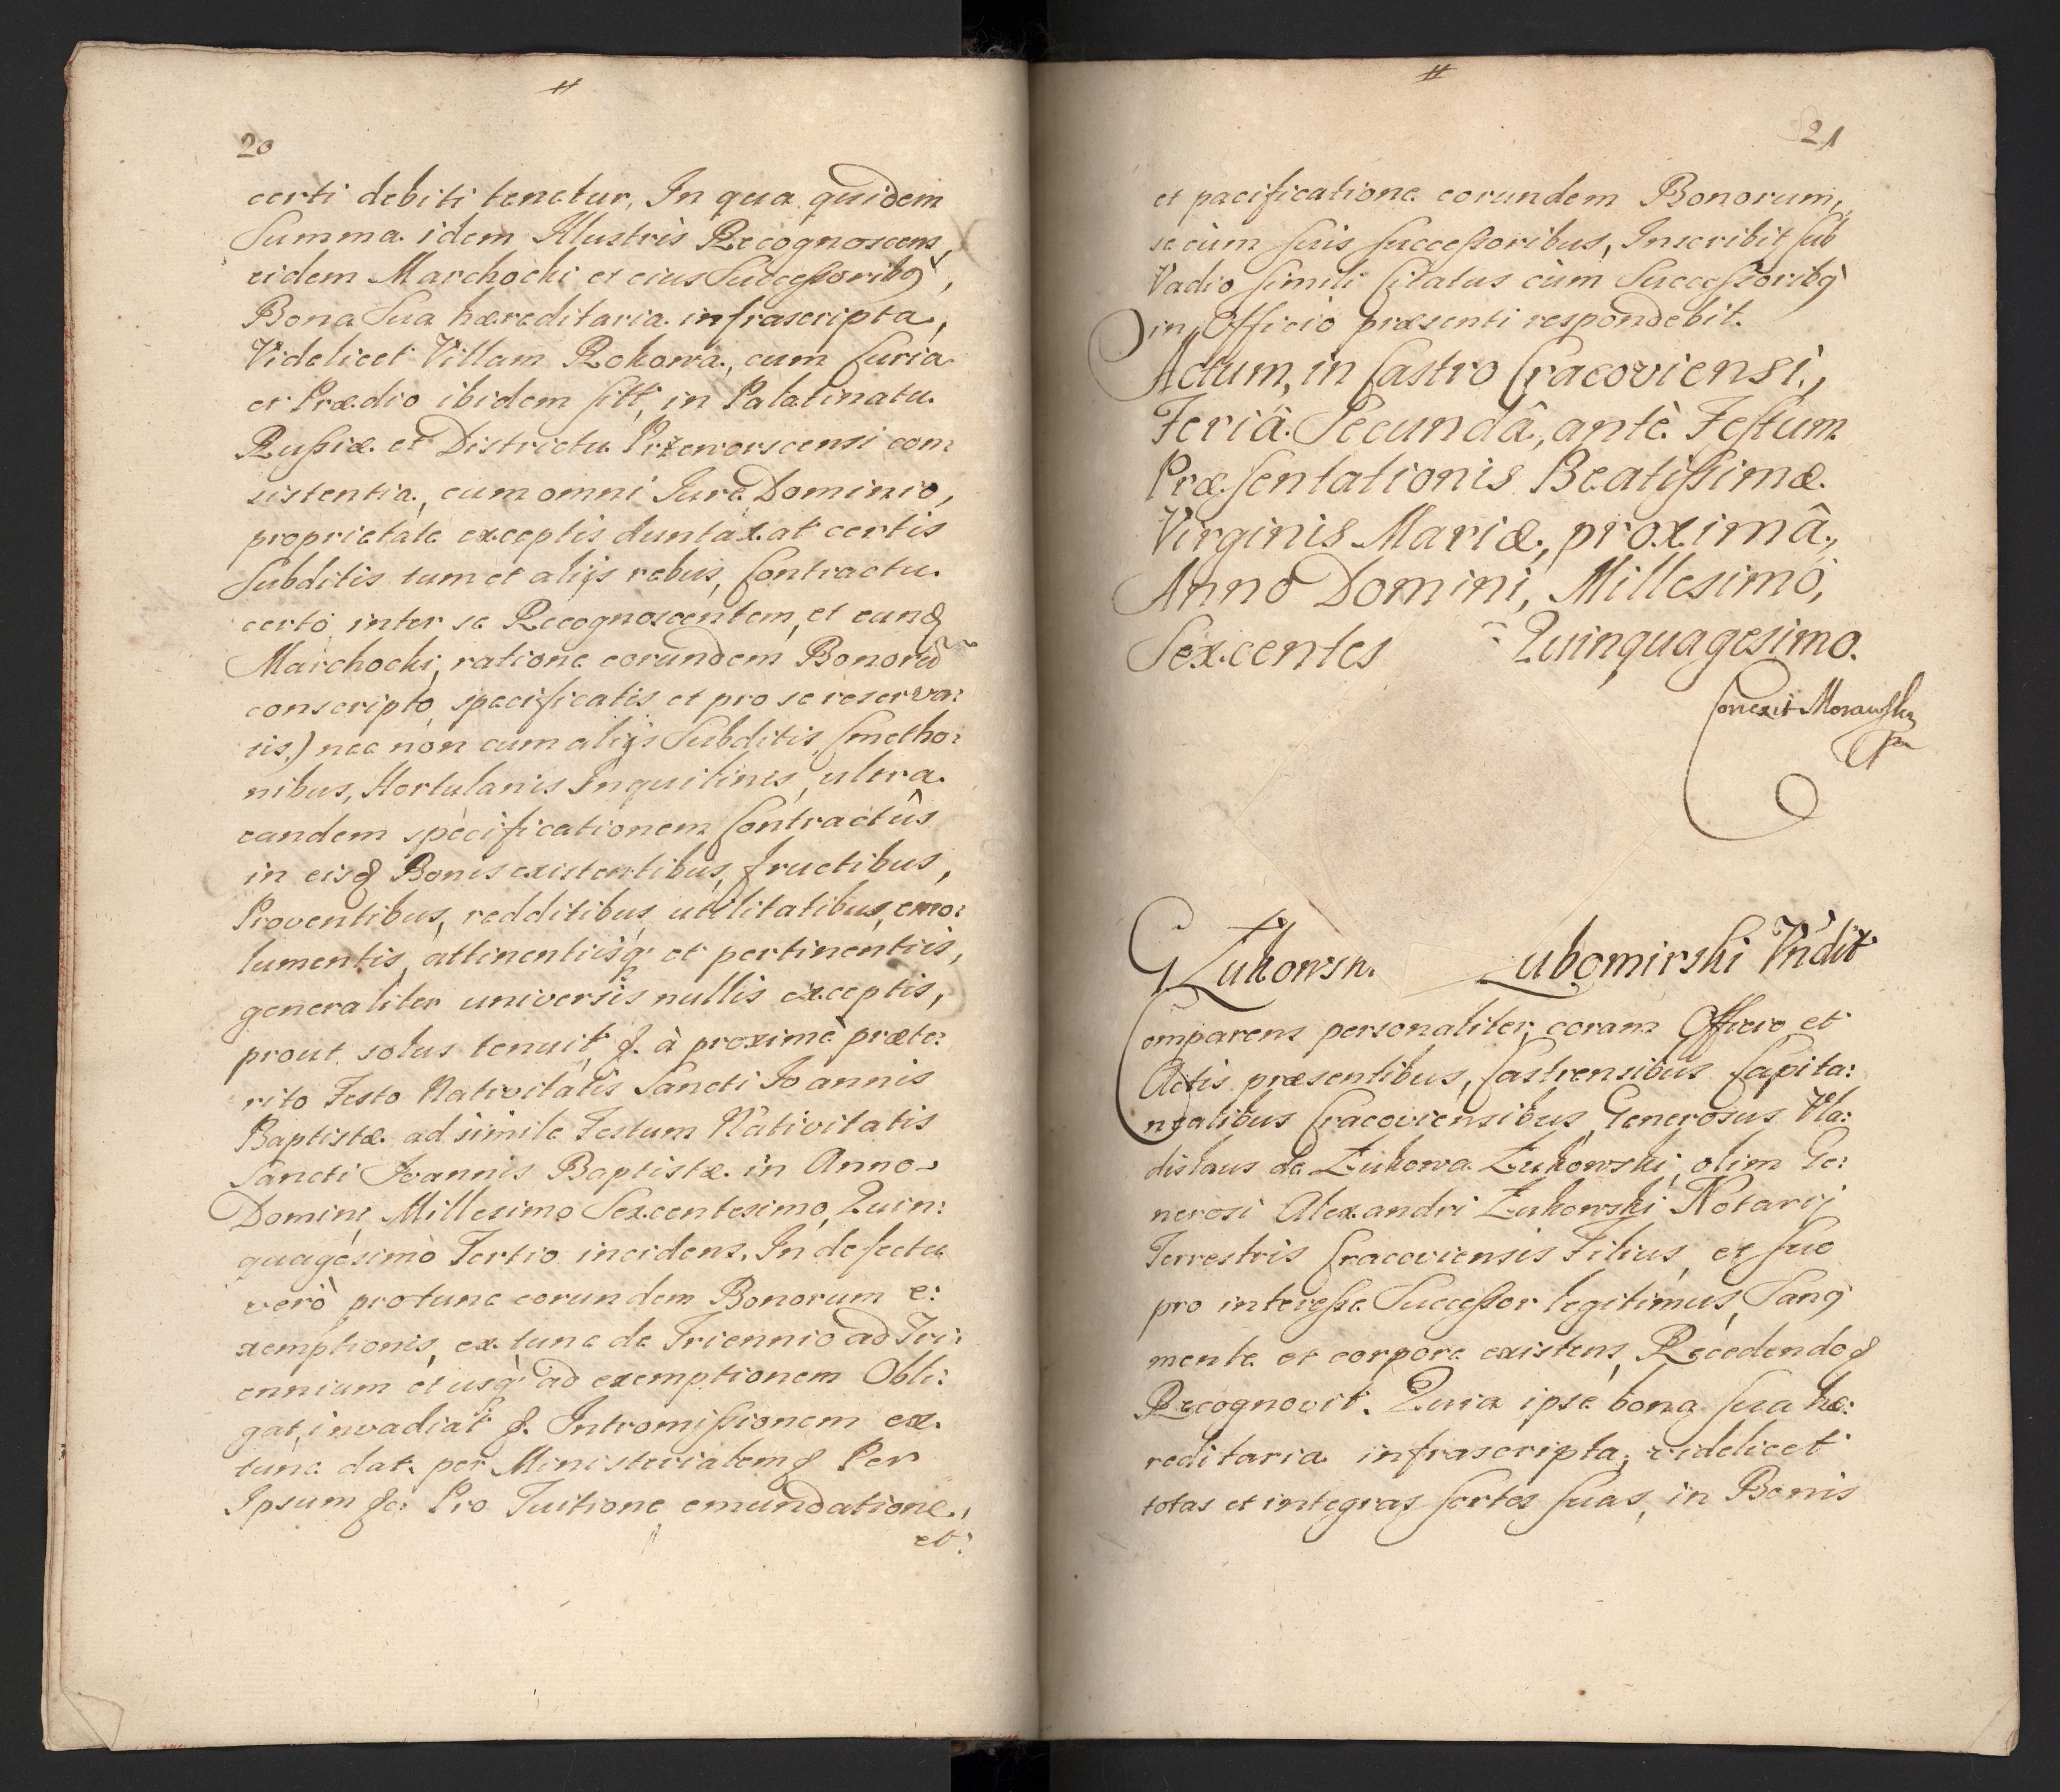 20
certi debiti tenetur, In qua quidem
Summa idem Illustris Recognoscens,
eidem Marchocki et eius Successoribq,
Bona Sua hæreditaria infrascripta,
Videlicet Villam Rokowa, cum Curia
et Prædio ibidem sitt, in Palatinatu
Russiæ et Districtu Przeworscensi con:
sistentia, cum omni Iure Dominio,
proprietate exceptis duntaxat certis
Subditis tum et alijs rebus, Contractu
certo inter se Recognoscentem, et eund
Marchocki, ratione eorundem Bonorũ
conscripto specificatis et pro se reserva:
tis.) nec non cum alijs Subditis, Cmetho:
nibus, Hortulanis Inquilinis, ultra
eandem specificationem Contractûs
in eisd Bonis existentibus, fructibus,
Proventibus, redditibus, utilitatibus, emo:
lumentis, attinentiisq et pertinentiis,
generaliter universis nullis exceptis,
prout solus tenuit, &. à proximè præte:
rito Festo Nativitatis Sancti Ioannis
Baptistæ ad simile Festum Nativitatis
Sancti Ioannis Baptistæ in Anno
Domini Millesimo Sexcentesimo Quin:
quagesimò Tertio incidens. In defectu
verò protunc eorundem Bonorum e:
xemptionis, ex tunc de Triennio ad Tri:
ennium et usq ad exemptionem Obli:
gat, invadiat &. Intromissionem ex
tunc dat per Ministerialem & Per
Ipsum &c: Pro Tuitione emundatione,
et:
21
et pacificatione eorundem Bonorum,
se cùm suis successoribus, Inscribit sub
Vadio simili Citatus cùm Successoribq
in Officio præsenti respondebit.
Actum, in Castro Cracoviensi,
Feriâ Secundâ, antè Festum
Præsentationis Beatissimæ
Virginis Mariæ, proximâ,
Anno Domini, Millesimo,
Sexcentes Quinquagesimo.
Correxit Morawsky
G Zukowsk. Lubomirski Vndit
Comparens personaliter, coram Officio et
Actis præsentibus, Castrensibus Capita:
nealibus Cracoviensibus, Generosus Vla:
dislaus de Zukowa Zukowski, olim Ge:
nerosi Alexandri Zukowski Notarij
Terrestris Cracoviensis Filius, et suo
pro interesse Successor legitimus, Sanq
mente et corpore existens, Recedendo &
Recognovit. Quia ipse bona sua hæ:
reditaria infrascripta, videlicet
totas et integras sortes suas, in Bonis